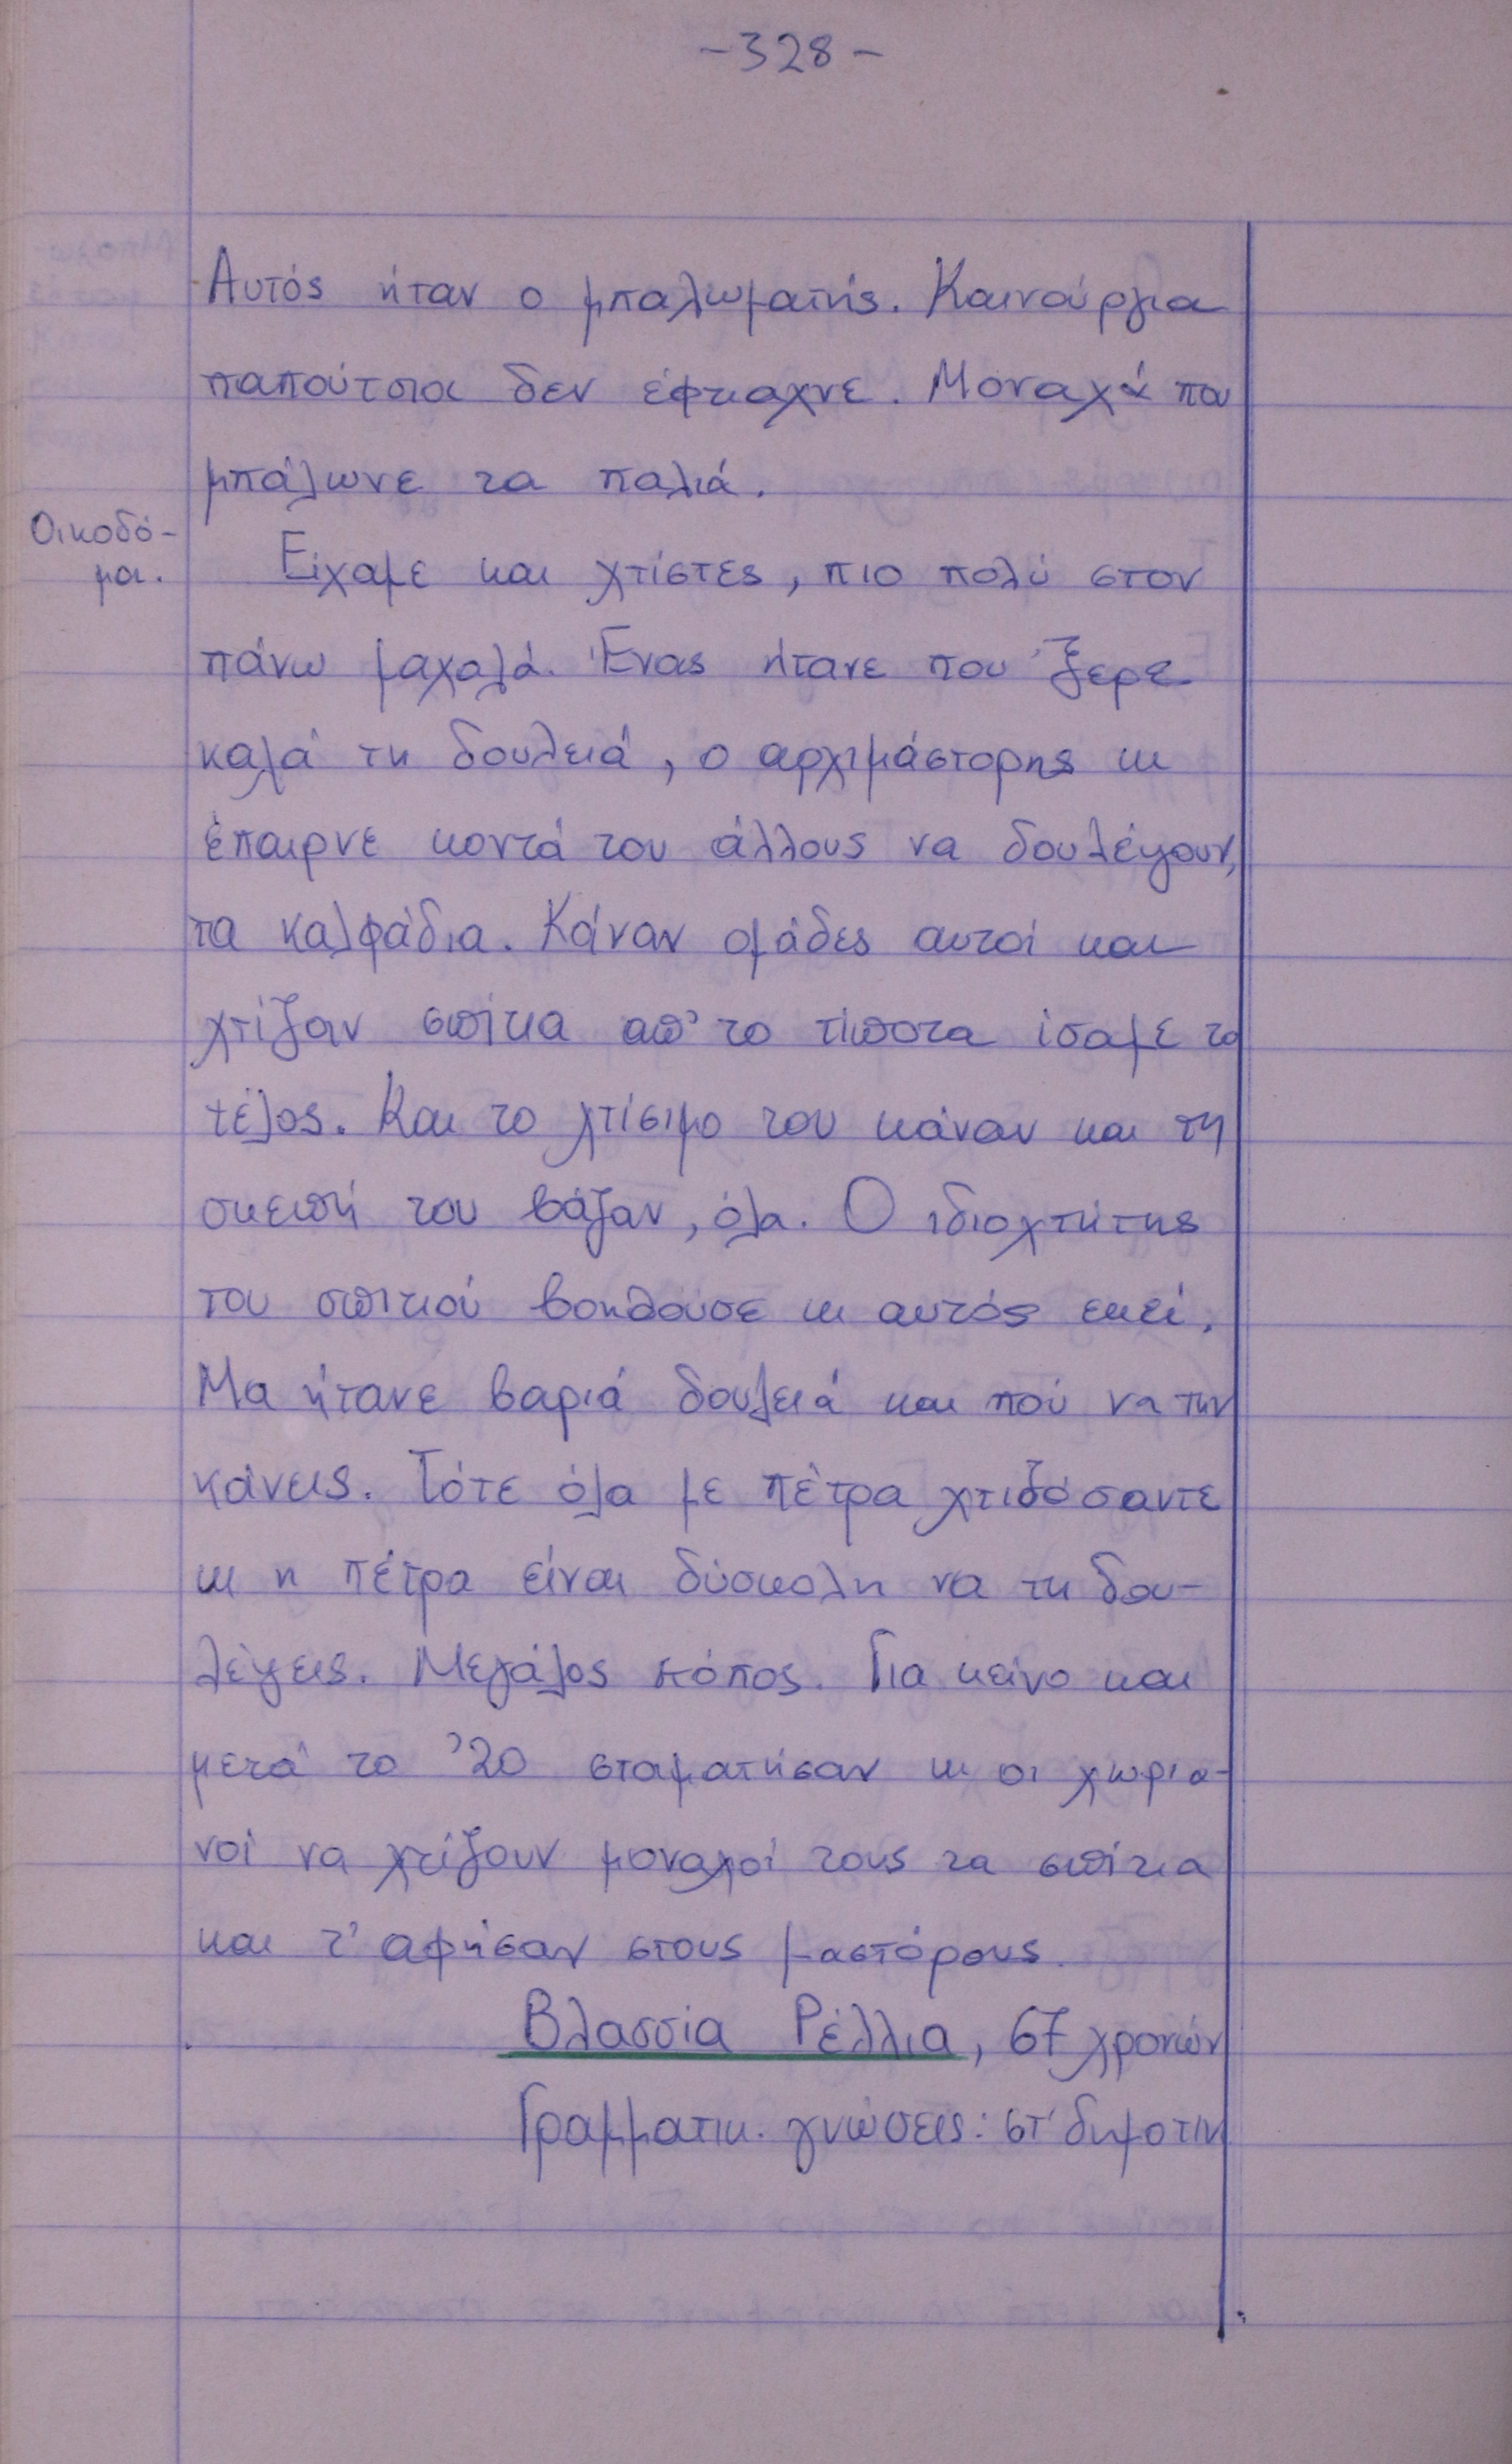 -328-
Αυτός ήταν ο μπαλωματής. Καινούργια
παπούτσια δεν έφτιαχνε. Μοναχά που
μπάλωνε τα παλιά.
Οικοδό-
μοι.
Είχαμε και χτίστες, πιο πολύ στον
πάνω μαχαλά. Ένας ήτανε που 'ξερε
καλά τη δουλειά, ο αρχιμάστορης κι
έπαιρνε κοντά του άλλους να δουλέψουν,
τα καλφάδια. Κάναν ομάδες αυτοί και
χτίζαν σπίτια απ' το τίποτα ίσαμε το
τέλος. Και το χτίσιμο του κάναν και τη
σκεπή του βάζαν, όλα. Ο ιδιοχτήτης
του σπιτιού βοηθούσε κι αυτός εκεί.
Μα ήτανε βαριά δουλειά και πού να την
κάνεις. Τότε όλα με πέτρα χτιζόσαντε
κι η πέτρα είναι δύσκολη να τη δου-
λέψεις. Μεγάλος κόπος. Για κείνο και
μετά το '20 σταματήσαν κι οι χωρια-
νοί να χτίζουν μοναχοί τους τα σπίτια
και τ' αφήσαν στους μαστόρους.
Βλασσία Ρέλλια, 67 χρονών
Γραμματικ. γνώσεις: στ' δημοτικ